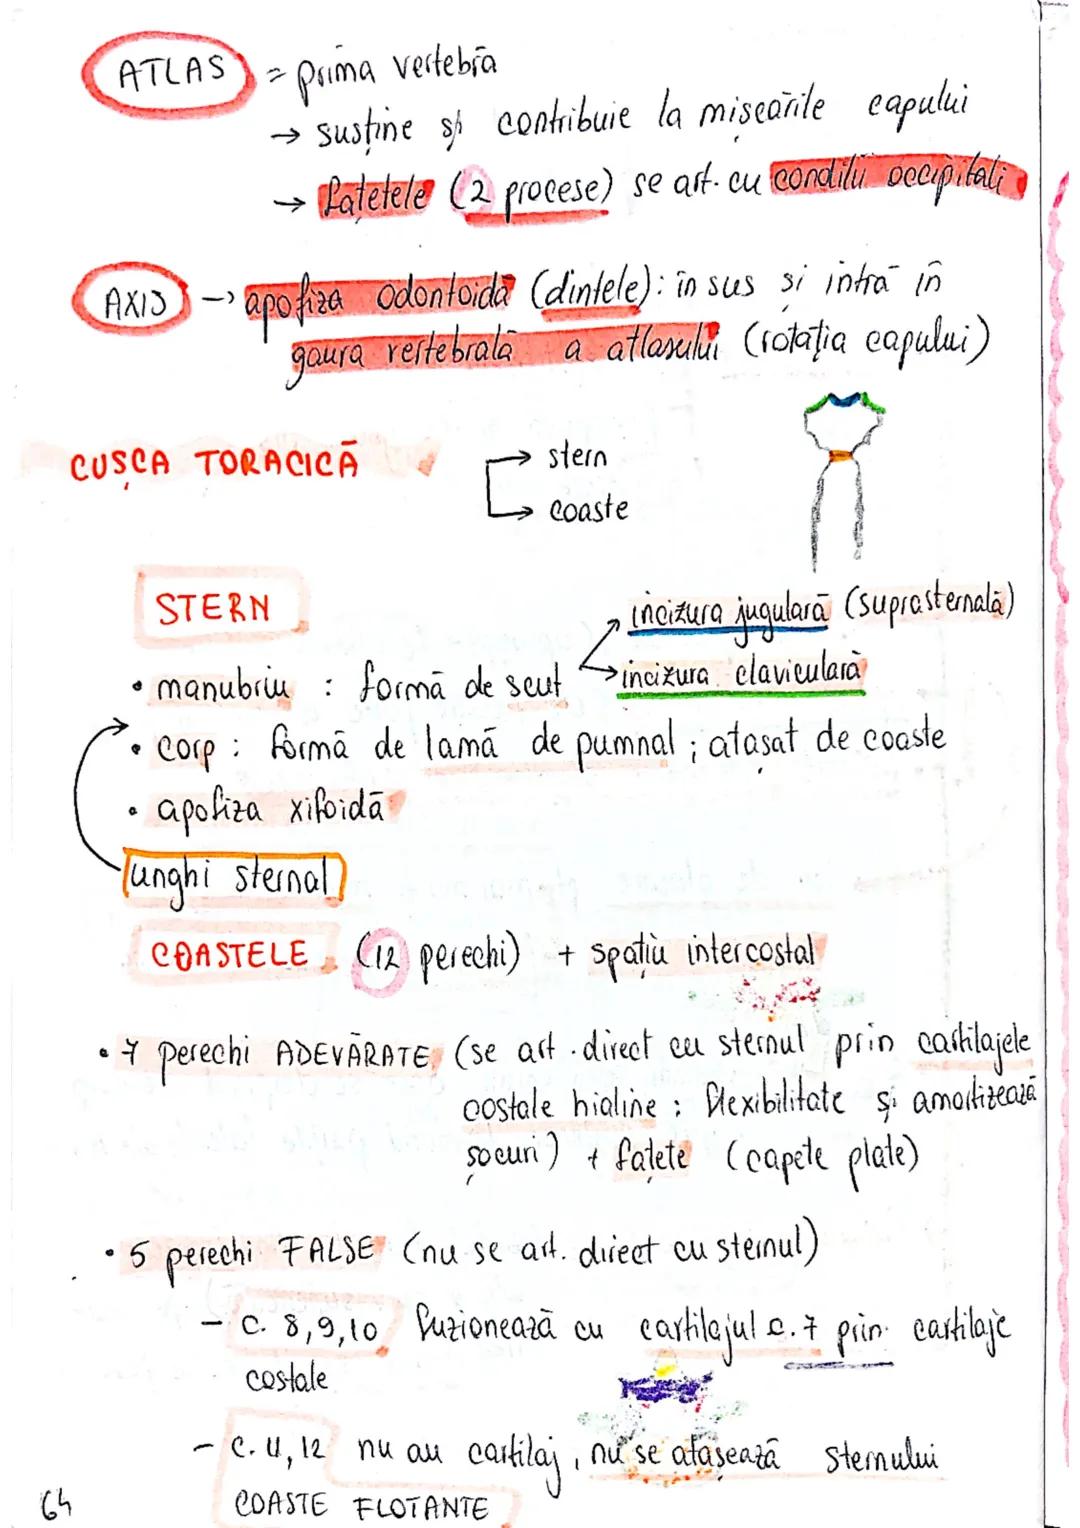 ATLAS = prima vertebră
→ susține și contribuie la mișcările capului
→ fațetele (2 procese) se art. cu condilii occipitali
AXIS → apofiza odontoidă (dintele): în sus si intră în
gaura vertebrală a atlasului (rotația capului)
CUȘCA TORACICĂ → stern
→ coaste
STERN
→ incizura jugulară (suprasternală)
• manubriu : formă de scut → incizura claviculară
• corp : formă de lamă de pumnal ; atașat de coaste
• apofiza xifoidă
unghi sternal
COASTELE (12 perechi) + spațiu intercostal
• 7 perechi ADEVĂRATE (se art. direct cu sternul prin cartilajele
costale hialine : flexibilitate și amortizează
șocuri) + fațete (capete plate)
• 5 perechi FALSE (nu se art. direct cu sternul)
- C. 8,9,10 fuzionează cu cartilajul c.7 prin cartilaje
costale
- C. 11, 12 nu au cartilaj, nu se atașează sternului
COASTE FLOTANTE
64